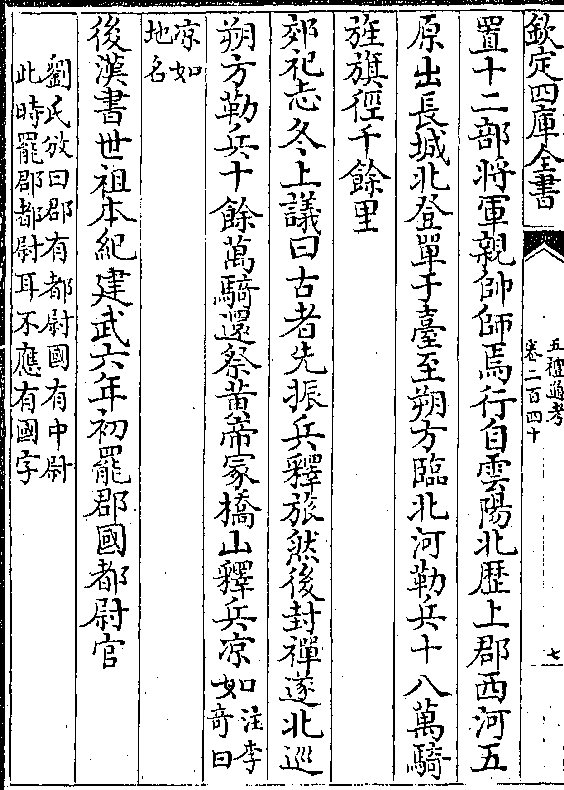 欽定四庫全書
五禮通考
卷二百四十
七
置十二部將軍親帥師焉行自雲陽北歴上郡西河五
原出長城北登單于臺至朔方臨北河勒兵十八萬騎
旌旗徑千餘里
郊祀志冬上議曰古者先振兵釋旅然後封禪遂北巡
朔方勒兵十餘萬騎還祭黄帝冢橋山釋兵凉如注李
竒曰
凉如
地名
後漢書世祖本紀建武六年初罷郡國都尉官
劉氏攽曰郡有都尉國有中尉
此時罷郡都尉耳不應有國字